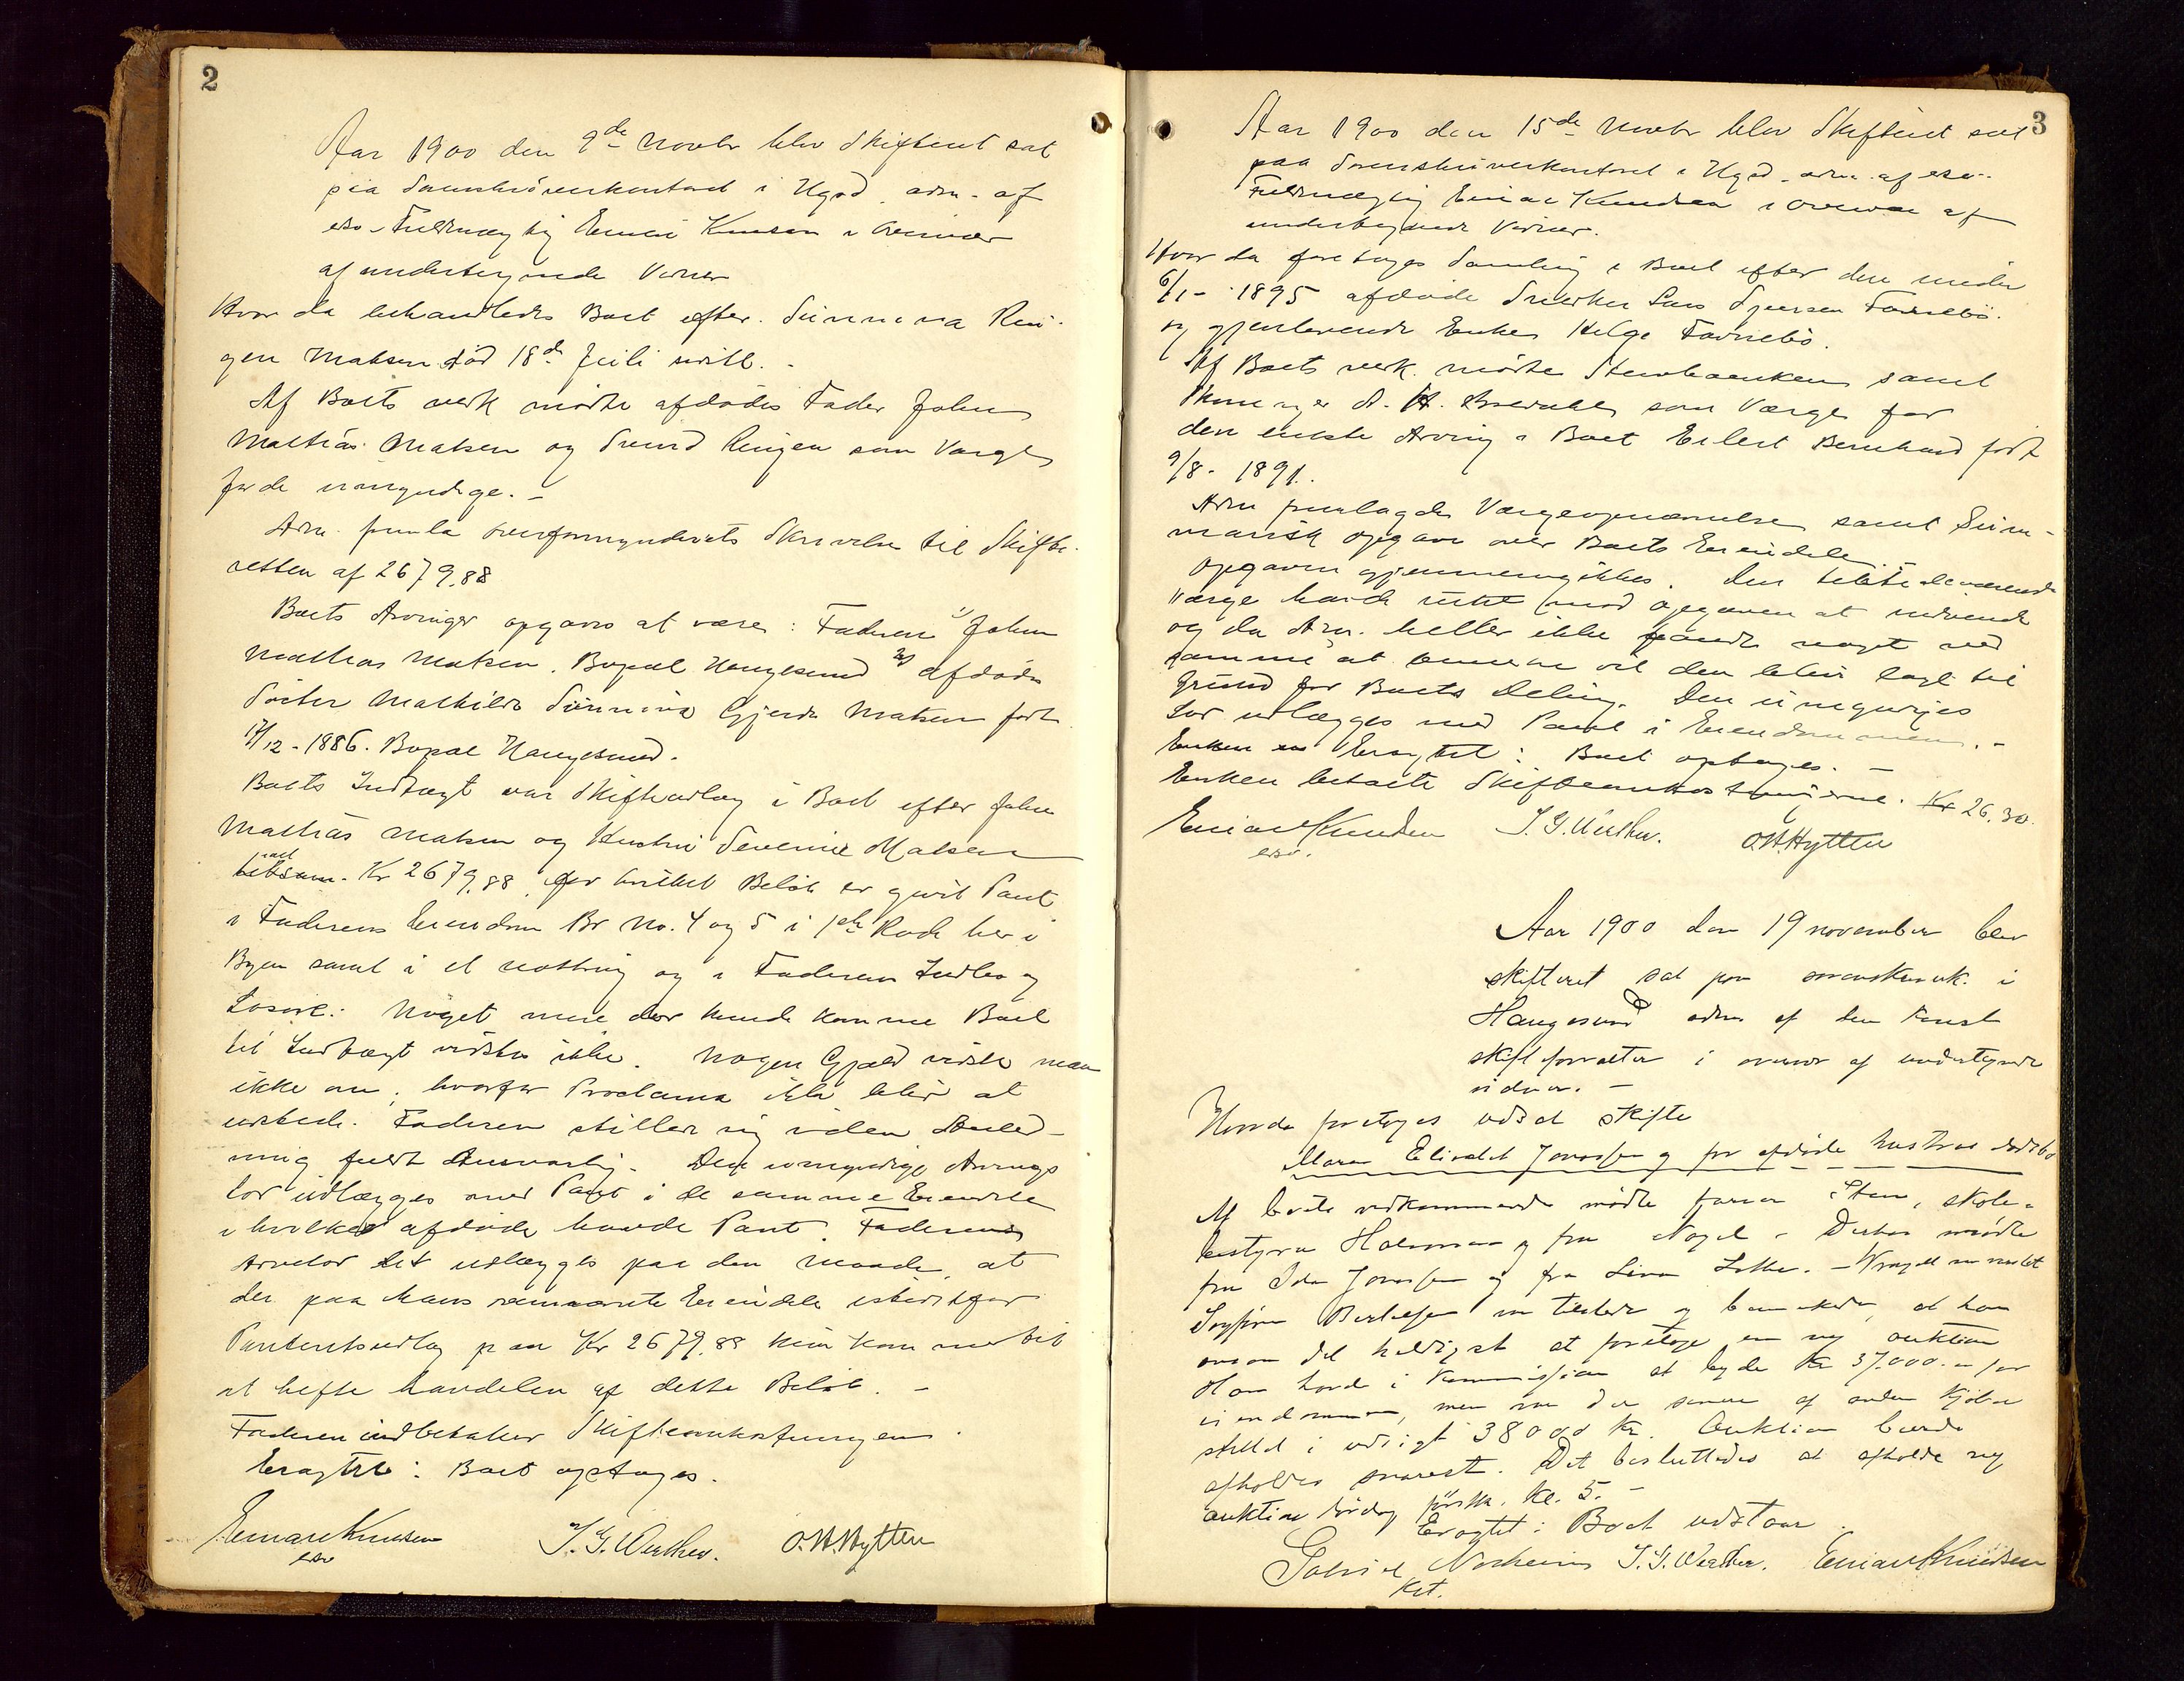 2
Aar 1900 den 9de Novbr blev Skifteret sat
paa Sorenskriverkontoret i Hgsd. adm. af
eso. Fuldmægtig Einar Knudsen i Overvær
af undertegnede Vidner
Hvor da behandledes Boet efter Sunniva Rin-
gen Matsen død 18de Juli sidstl. -
Af Boets vedk mødte afdødes Fader John
Mathias Matsen og Svend Ringen som Værge
for de umyndige. -
Adm. fremla overformynderiets Skrivelse til Skifte-
retten af 2679,88
Boets Arvinger opgaves at være: Faderen 1) John
Mathias Matsen. Bopæl Haugesund 2) afdødes
Søster Mathilde Sunniva Gjerde Matsen født
17/12-1886. Bopæl Haugesund.
Boets Indtægt var Skifteudlæg i Boet efter John
Mathias Matsen og Hustru Severine Matsen
Kr 2679,88, for hvilket Beløb er givit Pant
i Faderens Eiendom Br No. 4 og 5 i 1ste Rode her i
Byen samt i et notbrug og i Faderens Indbo og
Løsøre. Noget mere der kunde komme Boet
til Indtægt vidstes ikke. Nogen Gjæld vidste man
ikke om, hvorfor Proclama ikke blir at
udstede. Faderen stiller sig i den Anled-
ning fuldt Ansvarlig. Den umyndige Arvings
lod udlægges med Pant i de samme Eiendele
i hvilke afdøde havde Pant. Faderens
Arvelod udlægges paa den maade, at
der paa hans Eiendele
Pantentsudlæg paa Kr 2679,88 kun kommer til
at hefte halvdelen af dette Beløb. -
Faderen indbetaler Skifteomkostningen.
Eragtet: Boet optages.
Einar Knudsen
eso
T. G. Werther.
O. H. Hytten
3
Aar 1900 den 15de Novbr blev Skifteret sat
paa Sorenskriverkontoret i Hgsd. adm. af eso.
Fuldmægtig Einar Knudsen i Overvær af
undertegnede Vidner.
Hvor da foretoges Samling i Boet efter den under
6/1- 1895 afdøde Snedker Lars
og gjenlevende Enke Helge
Af Boets vedk. mødte Stervboenken samt
som Værge for
den eneste Arving i Boet Eilert Bernhard født
9/8- 1891.
Adm fremlagde Værgeopnævnelse samt Sum-
marisk opgave over Boets Eiendele
Opgaven gjennemgikkes. Den tilstedeværende
Værge havde intet mod opgaven at indvende
og da Adm. heller ikke fandt noget ved
samme at bemærke vil den bliv lagt til
Grund for Boets Deling. Den umyndiges
Lod udlægges med Pant i Eiendommen. -
Enken Eragtet: Boet optages. -
Enken betalte Skifteomkostningerne. Kr 26.30.
Einar Knudsen
eso.
T. G. Werther.
O. H. Hytten
Aar 1900 den 19 november blev
skifteret sat paa sorenskriverk. i
Haugesund adm af den konst
skifteforvalter i overvær af undertegnede
vidner. -
Hvorda foretoges udsat skifte
Maren Elisabet Jonassen og før afdøde hustrus dødsbo
Af boets vedkommende mødte, skole-
bestyrer og fru Nagel - Desuden mødte
fru Ida Jonassen og fru Lina
var tilstede og bemærkede, at han
ansaa det heldigst at foretage en ny auktion
Han havde i kommission at byde Kr 37.000.- for
eiendommen, men var der senere af anden kjøber
stillet i udsigt 38000 Kr. Auktion burde
afholdes snarest. Det besluttedes at afholde ny
auktion lørdag førstk. Kl. 5. -
Eragtet: Boet udstaar.
Gabriel
Kst.
T. G. Werther.
Einar Knudsen